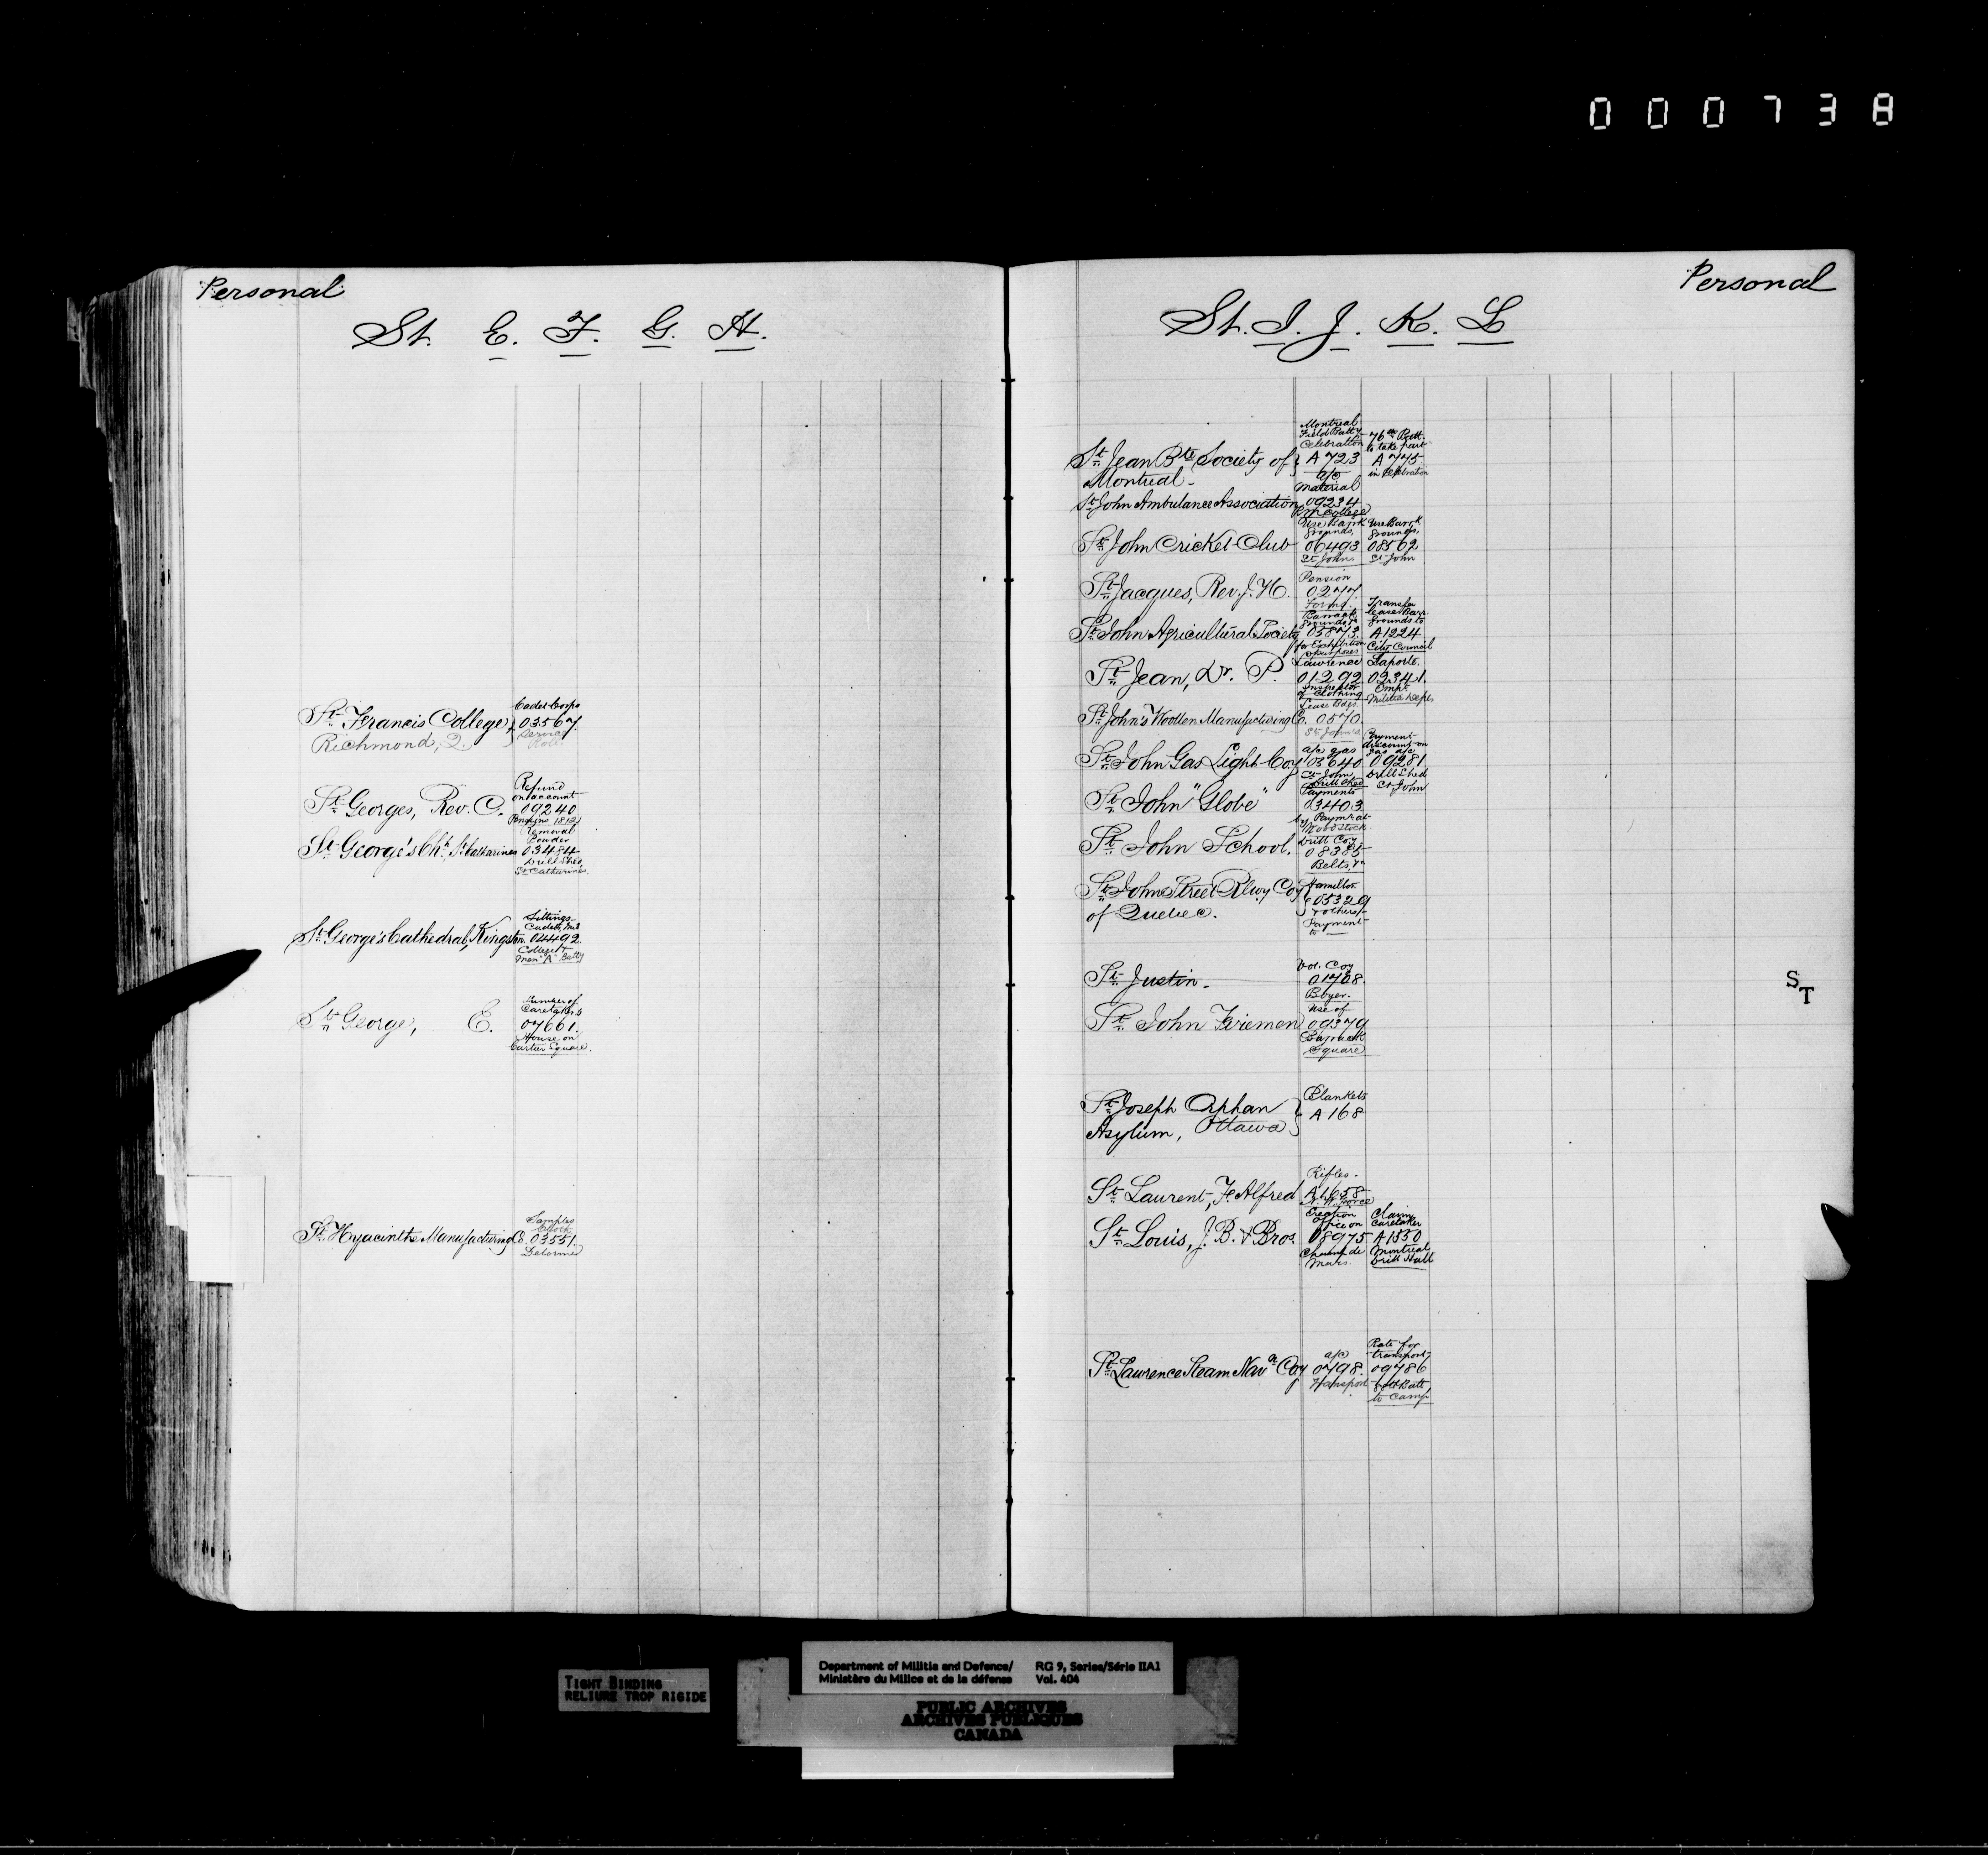 000738
Personal
St. E. F. G. H.
St. Francis College,
Richmond, Q.
Cadet Corps
03567.
Service
Roll.
St. Georges, Rev. C.
Refund
on account
09240
St. George's Ch. St. Catharines
removal
Powder
03484
Drill Shed,
St. Catharines.
St. George's Cathedral, Kingston.
Sittings
Cadets Mil
04492
College &
Men "A" Batty
St. George, E.
Number of
Caretakers
07661.
House on
Cartier Square.
St. Hyacinthe Manufacturing Co.
Samples
03551.
Personal
St. I. J. K. L
St. Jean Bte Society of
Montreal
Montreal
Field Batty
Celebration
A 723
76th Batt.
to take part
A 775
in celebration
St. John Ambulance Association
a/c
Material
09234
R M College
St. John Cricket Club
Use Barrk
Grounds,
06493
St. John
Use Barrk
Grounds,
08502
St. John
St. Jacques, Rev. J. H.
Pension
0277.
St. John Agricultural Society
Barrack
Grounds
05873
for Exhibition
purposes
Transfer
lease Barr.
Grounds to
A1224
City Council
St. Jean, Dr. P.
Lawrence
01292
Inspector
of Clothing
Laporte.
02341.
Empt.
Militia Dept.
St. John's Woollen Manufacturing Co.
Lease Bdgs.
0570.
St. John's
St. John Gas Light Coy
a/c gas
03640
St. John
Drill Shed
Payment
discount on
gas a/c
09281
Drill Shed
St. John
St. John "Globe"
Payments
03403
St. John School.
Drill Coy
08385
Belts, &c
St. John Street Rlwy. Coy
of Quebec.
Hamilton
05329
& others
Payment
to
St. Justin.
Vol. Coy
01708.
Boyer.
St. John Firemen
Use of
09379
Barrack
Square
St. Joseph Orphan
Asylum, Ottawa
Blankets
A 168
St. Laurent, F. Alfred
Rifles.
A1658
N. W. Force
St. Louis, J. B. & Bros.
Erection
Office on
08975
Champ de
Mars.
Claim
Caretaker
A1550
Montreal
Drill Hall
St. Lawrence Steam Navn Coy
a/c
0798.
Transport
Rate for
transport
09786
to Camp
S
T
TIGHT BINDING
RELIURE TROP RIGIDE
Department of Militia and Defence/
Ministère du Milice et de la défense
RG 9, Series/Série IIA1
Vol. 404
PUBLIC ARCHIVES
ARCHIVES PUBLIQUES
CANADA